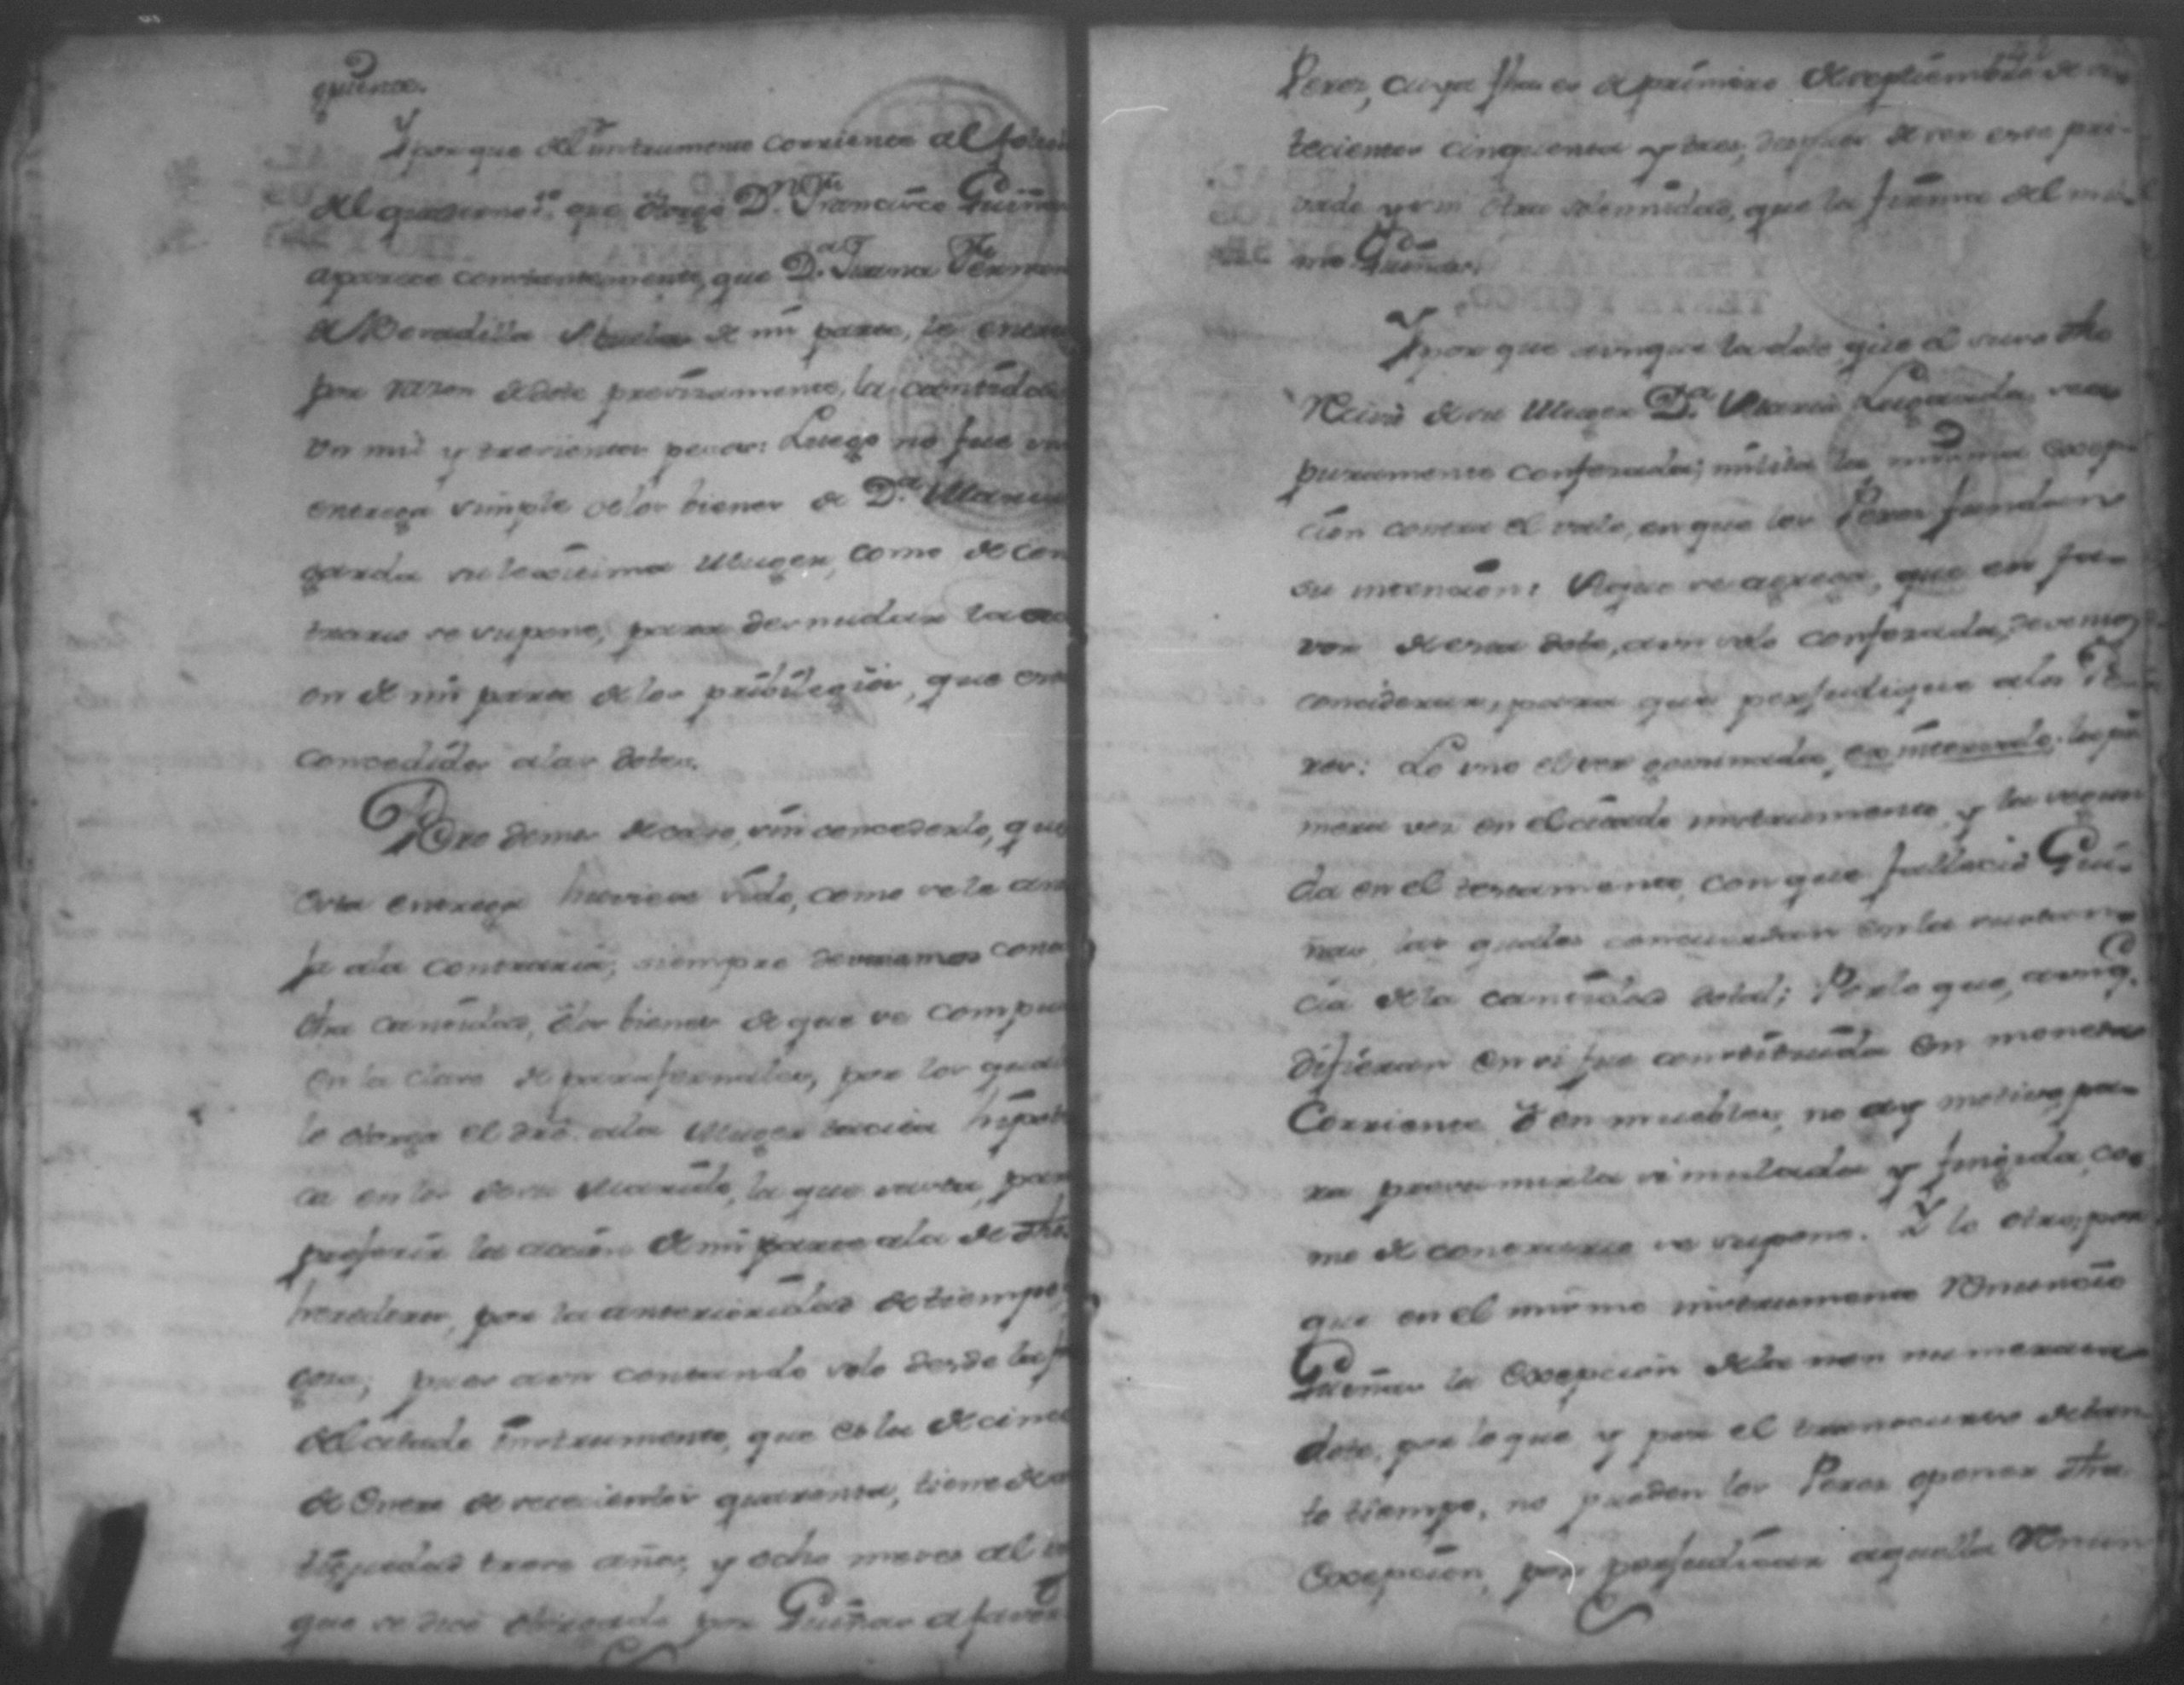 quence.
Y porque del instrumento corriente al folio
del quaderno 1º que otorgó Dn. Francisco Guiñar
aparece constantemente, que Da. Juana
de Bovadilla Abuela de mi parte, le entre
por razon de dote precisamente, la cantidad
un mil y trecientos pesos: Luego no fue
entrega simple de los bienes de Da. Maria
garda su lexitima Muger, como de con
trario se supone, para desnudar la
on de mi parte de los pribilegios, que
concedidos a las dotes.
Pero demos de caso, sin concederlo, que
esta entrega huviese sido, como se le
ja a la contraria; siempre
dha cantidad, ó los bienes de que se compu
en la clase de parafernales, por los qual
le otorga el dro. a la Muger tacita hipote
ca en los de su Marido, la que vasta, para
preferir la accion de mi parte a la de dhos
herederos, por la anterioridad de tiempo
pues aun contando solo desde la
del citado instrumento, que es la de cinco
de Enero de setecientos quarenta, tiene de
tiguedad trece años, y ocho meses al
que se dice otorgado por Guiñar a favor
Perez, cuya fha es de primero de septiembre de
tecientos cinquenta y tres, despues de ser este pri-
vado y sin otra solemnidad, que la firma del mis-
mo Guiñar.
Y porque aunque la dote que a suso dho
Recivió de su Muger Da. Maria Lugarda sea
puramente confesada; milita la misma excep-
cion contra el vale, en que los Perez fundan
su intencion: A que se agrega, que en fa-
vor de esta dote, aun solo confesada, devemos
considerar, para que perjudique a los Pe-
rez: Lo uno el ser geminada, ex intervalo la pri
mera vez en el citado instrumento, y la segun
da en el testamento, con que fallecio Gui-
ñar, las quales concuerdan en la sustan
cia de la cantidad dotal; Por lo que, aunq.
difieran en si fue constituida en moneda
Corriente ó en muebles, no ay motivo pa-
ra presumirla simulada y fingida, co-
mo de contrario se supone. Y lo otro, por
que en el mismo instrumento Renunció
Guiñar la Excepcion de la non numerata
dote, por lo que y por el transcurso de tan
to tiempo, no pueden los Perez oponer dha
Excepcion, por perjudicar aquella Renun